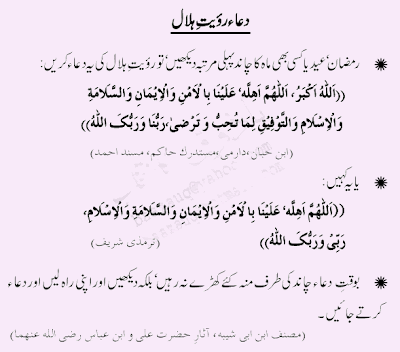 دعاء رؤیتِ ہلال
رمضان‘ عید یا کسی بھی ماہ کا چاند پہلی مرتبہ دیکھیں‘ تو رؤیت ہلال کی یہ دعاء کریں:
((اَللّٰهُ اَكْبَرُ، اَللّٰهُمَّ اَهِلَّه، عَلَيْنَا بِالْاَمْنِ وَالْاِيْمَانِ وَالسَّلَامَةِ
وَالْاِسْلَامِ وَالتَّوْفِيْقِ لِمَا تُحِبُّ وَ تَرْضىٰ،رَبُّنَا وَرَبُّکَ اللّٰهُ))
(ابن حبان،دارمی،مستدرک حاکم، مسند احمد)
یا یہ کہیں:
((اَللّٰهُمَّ اَهِلَّه، عَلَيْنَا بِالْاَمْنِ وَالْاِيْمَانِ وَالسَّلَامَةِ وَالْاِسْلَامِ،
رَبِّيْ وَرَبُّکَ اللّٰهُ)) (ترمذی شریف)
بوقتِ دعاء چاند کی طرف منہ کئے کھڑے نہ رہیں‘ بلکہ دیکھیں اور اپنی راہ لیں اور دعاء
کرتے جائیں۔
(مصنف ابن ابی شیبہ، آثارِ حضرت علی و ابن عباس رضی اللہ عنهما)